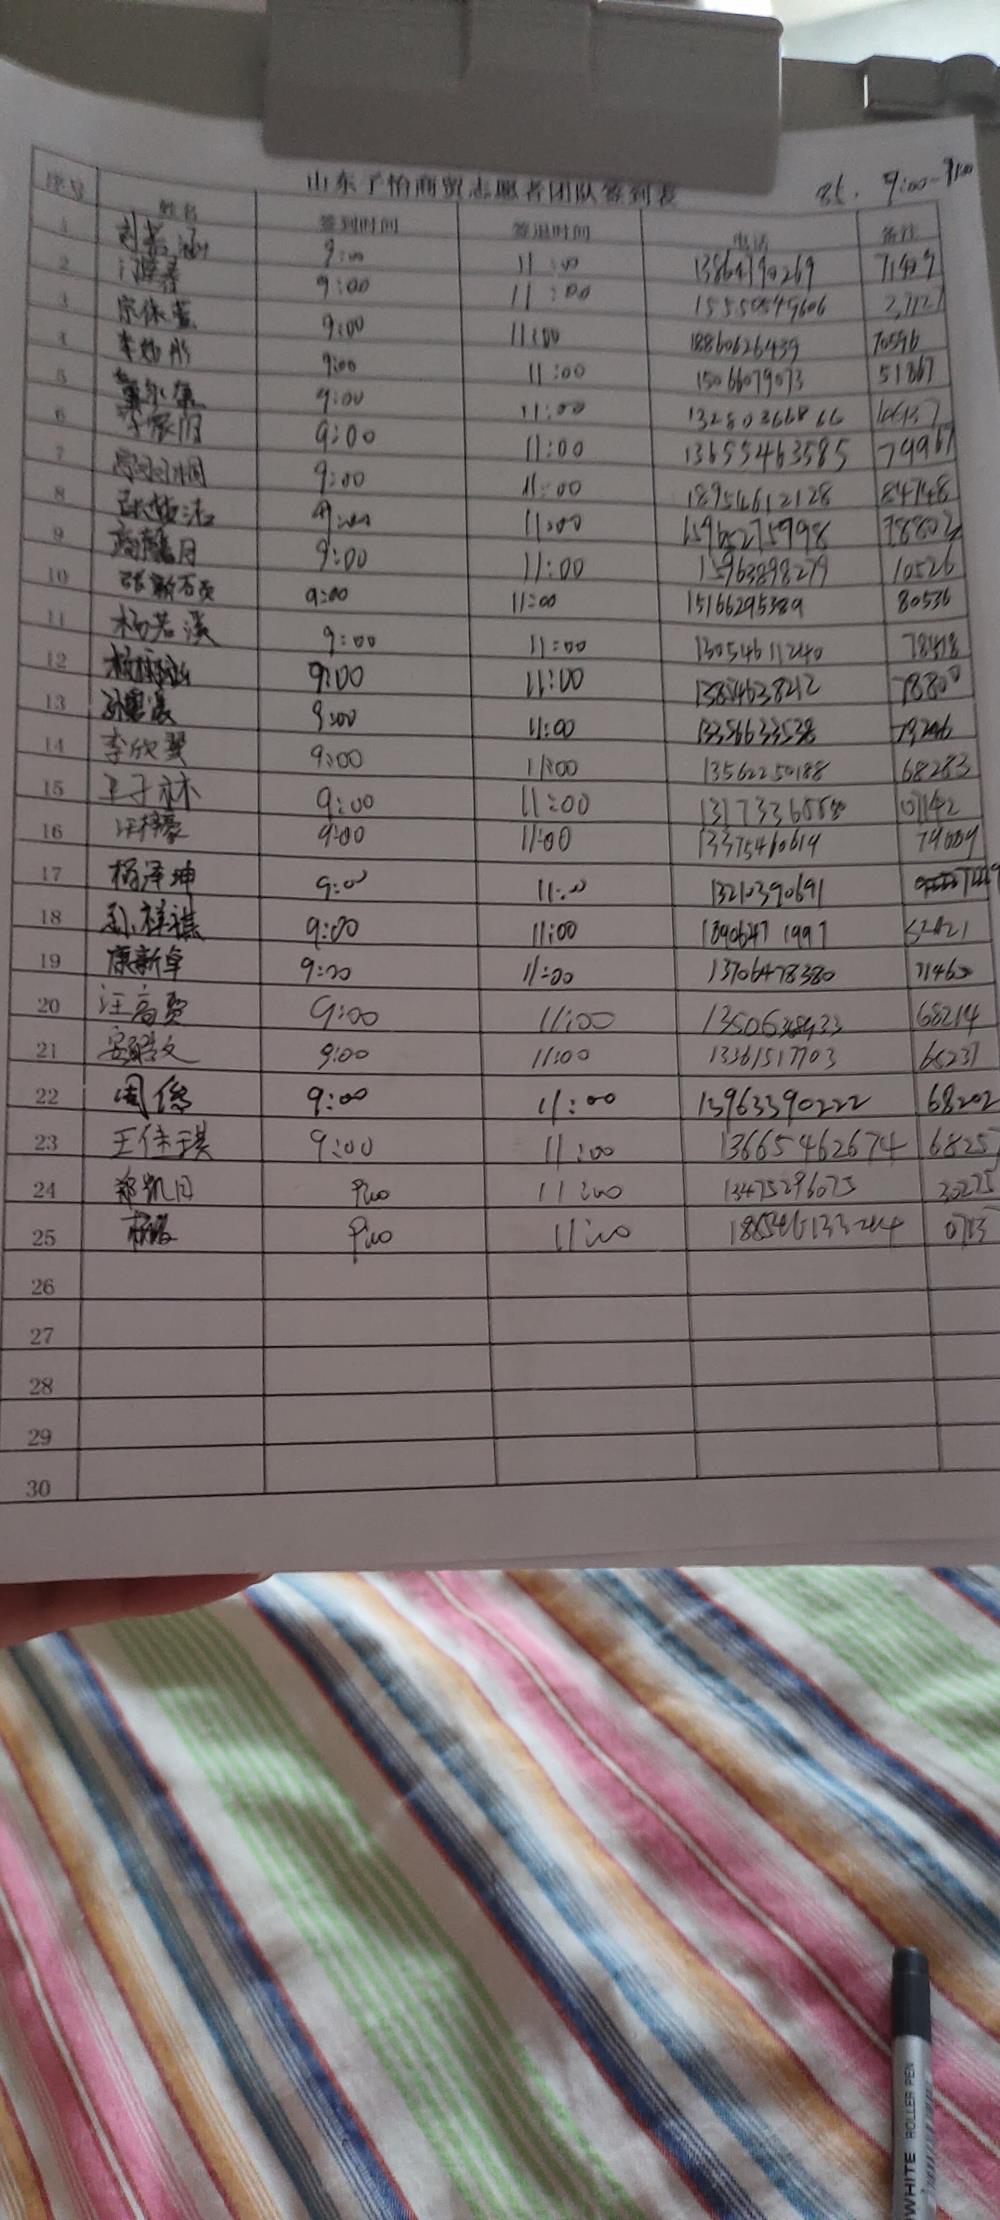 山东子怡商贸志愿者团队签到表 9:00-11:00
序号 姓名 签到时间 签退时间 电话 备注
1 刘若涵 9:00 11:00 13864790269 71409
2 9:00 11:00 15550549606
3 宗依萱 9:00 11:00 18860626439 70596
4 李灿彤 9:00 11:00 15066079073 51867
5 9:00 11:00 13280366866
6 9:00 11:00 13655463585 79967
7 9:00 11:00 18954612128 84748
8 9:00 11:00 15965275998 78802
9 9:00 11:00 15963898279 10526
10 张新苡 9:00 11:00 15166295389 80536
11 杨若溪 9:00 11:00 13054611240 78418
12 9:00 11:00 13854638212 78800
13 9:00 11:00 13356633538
14 李欣翼 9:00 11:00 13562250188 68283
15 9:00 11:00 07142
16 汪梓豪 9:00 11:00 13375460619 79009
17 杨泽坤 9:00 11:00 13210390691
18 孙祥祺 9:00 11:00 18906471997
19 康新卓 9:00 11:00 13706478380 71460
20 汪高贤 9:00 11:00 68214
21 9:00 11:00 13361517703 68237
22 周修 9:00 11:00 13963390222 68202
23 王佳琪 9:00 11:00 13665462674 6825
24 郑凯月 9:00 11:00 13475296075 30275
25 9:00 11:00
26
27
28
29
30
WHITE ROLLER PEN